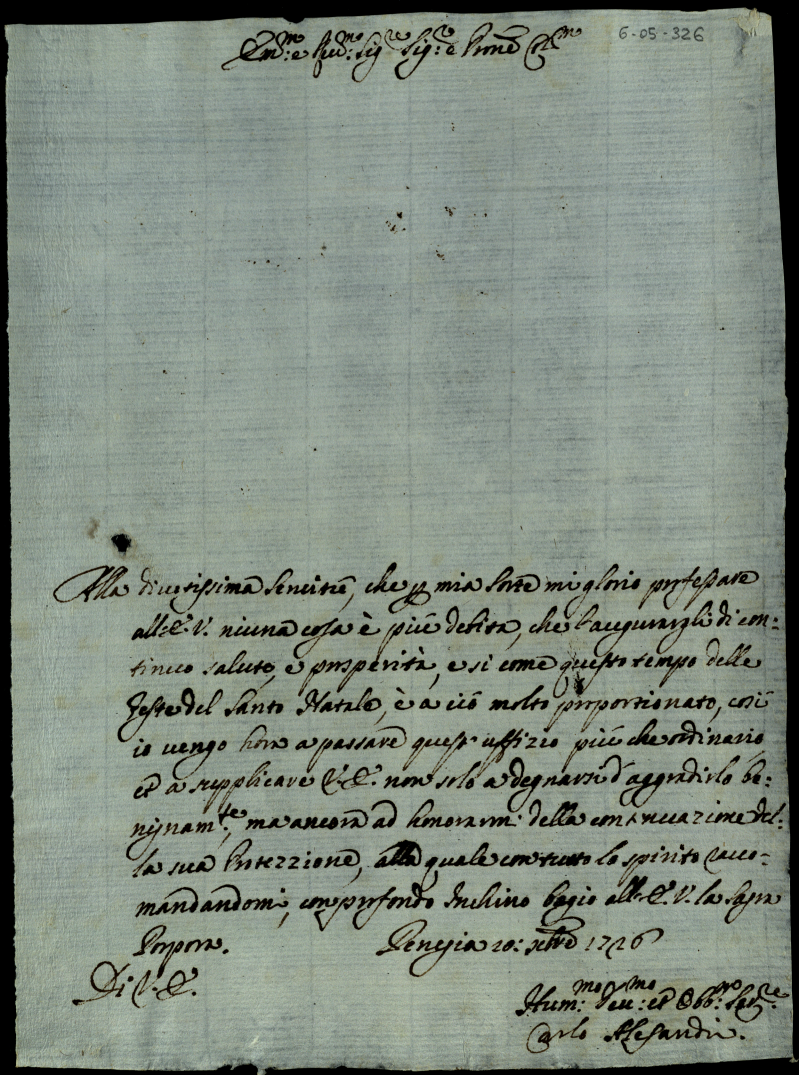 Em.mo e Rev.mo Sig.re Sig.re e Prone Col.mo
6-05-326
Alla divotissima servitù, che p mia sorte mi glorio professare
all'E. V. niuna cosa è più debita, che l'augurargli di con:
tinuo salute, e prosperità, e si come questo tempo delle
feste del Santo Natale, è a ciò molto proportionato, così
io vengo hora a passare quest'uffizio più che ordinario
et a supplicare V. E. non solo a degnarsi d'aggradirlo be:
nignam.te, ma ancora ad honorarmi della continuazione del:
la sua Protezzione, alla quale con tutto lo spirito racco:
mandandomi, con profondo Inchino bagio all'E. V. la Sagra
Porpora. Perugia 20: xbre 1726
Di V. E.
Hum.mo Dev.mo et Obb.mo Ser.re
Carlo Alesandri.